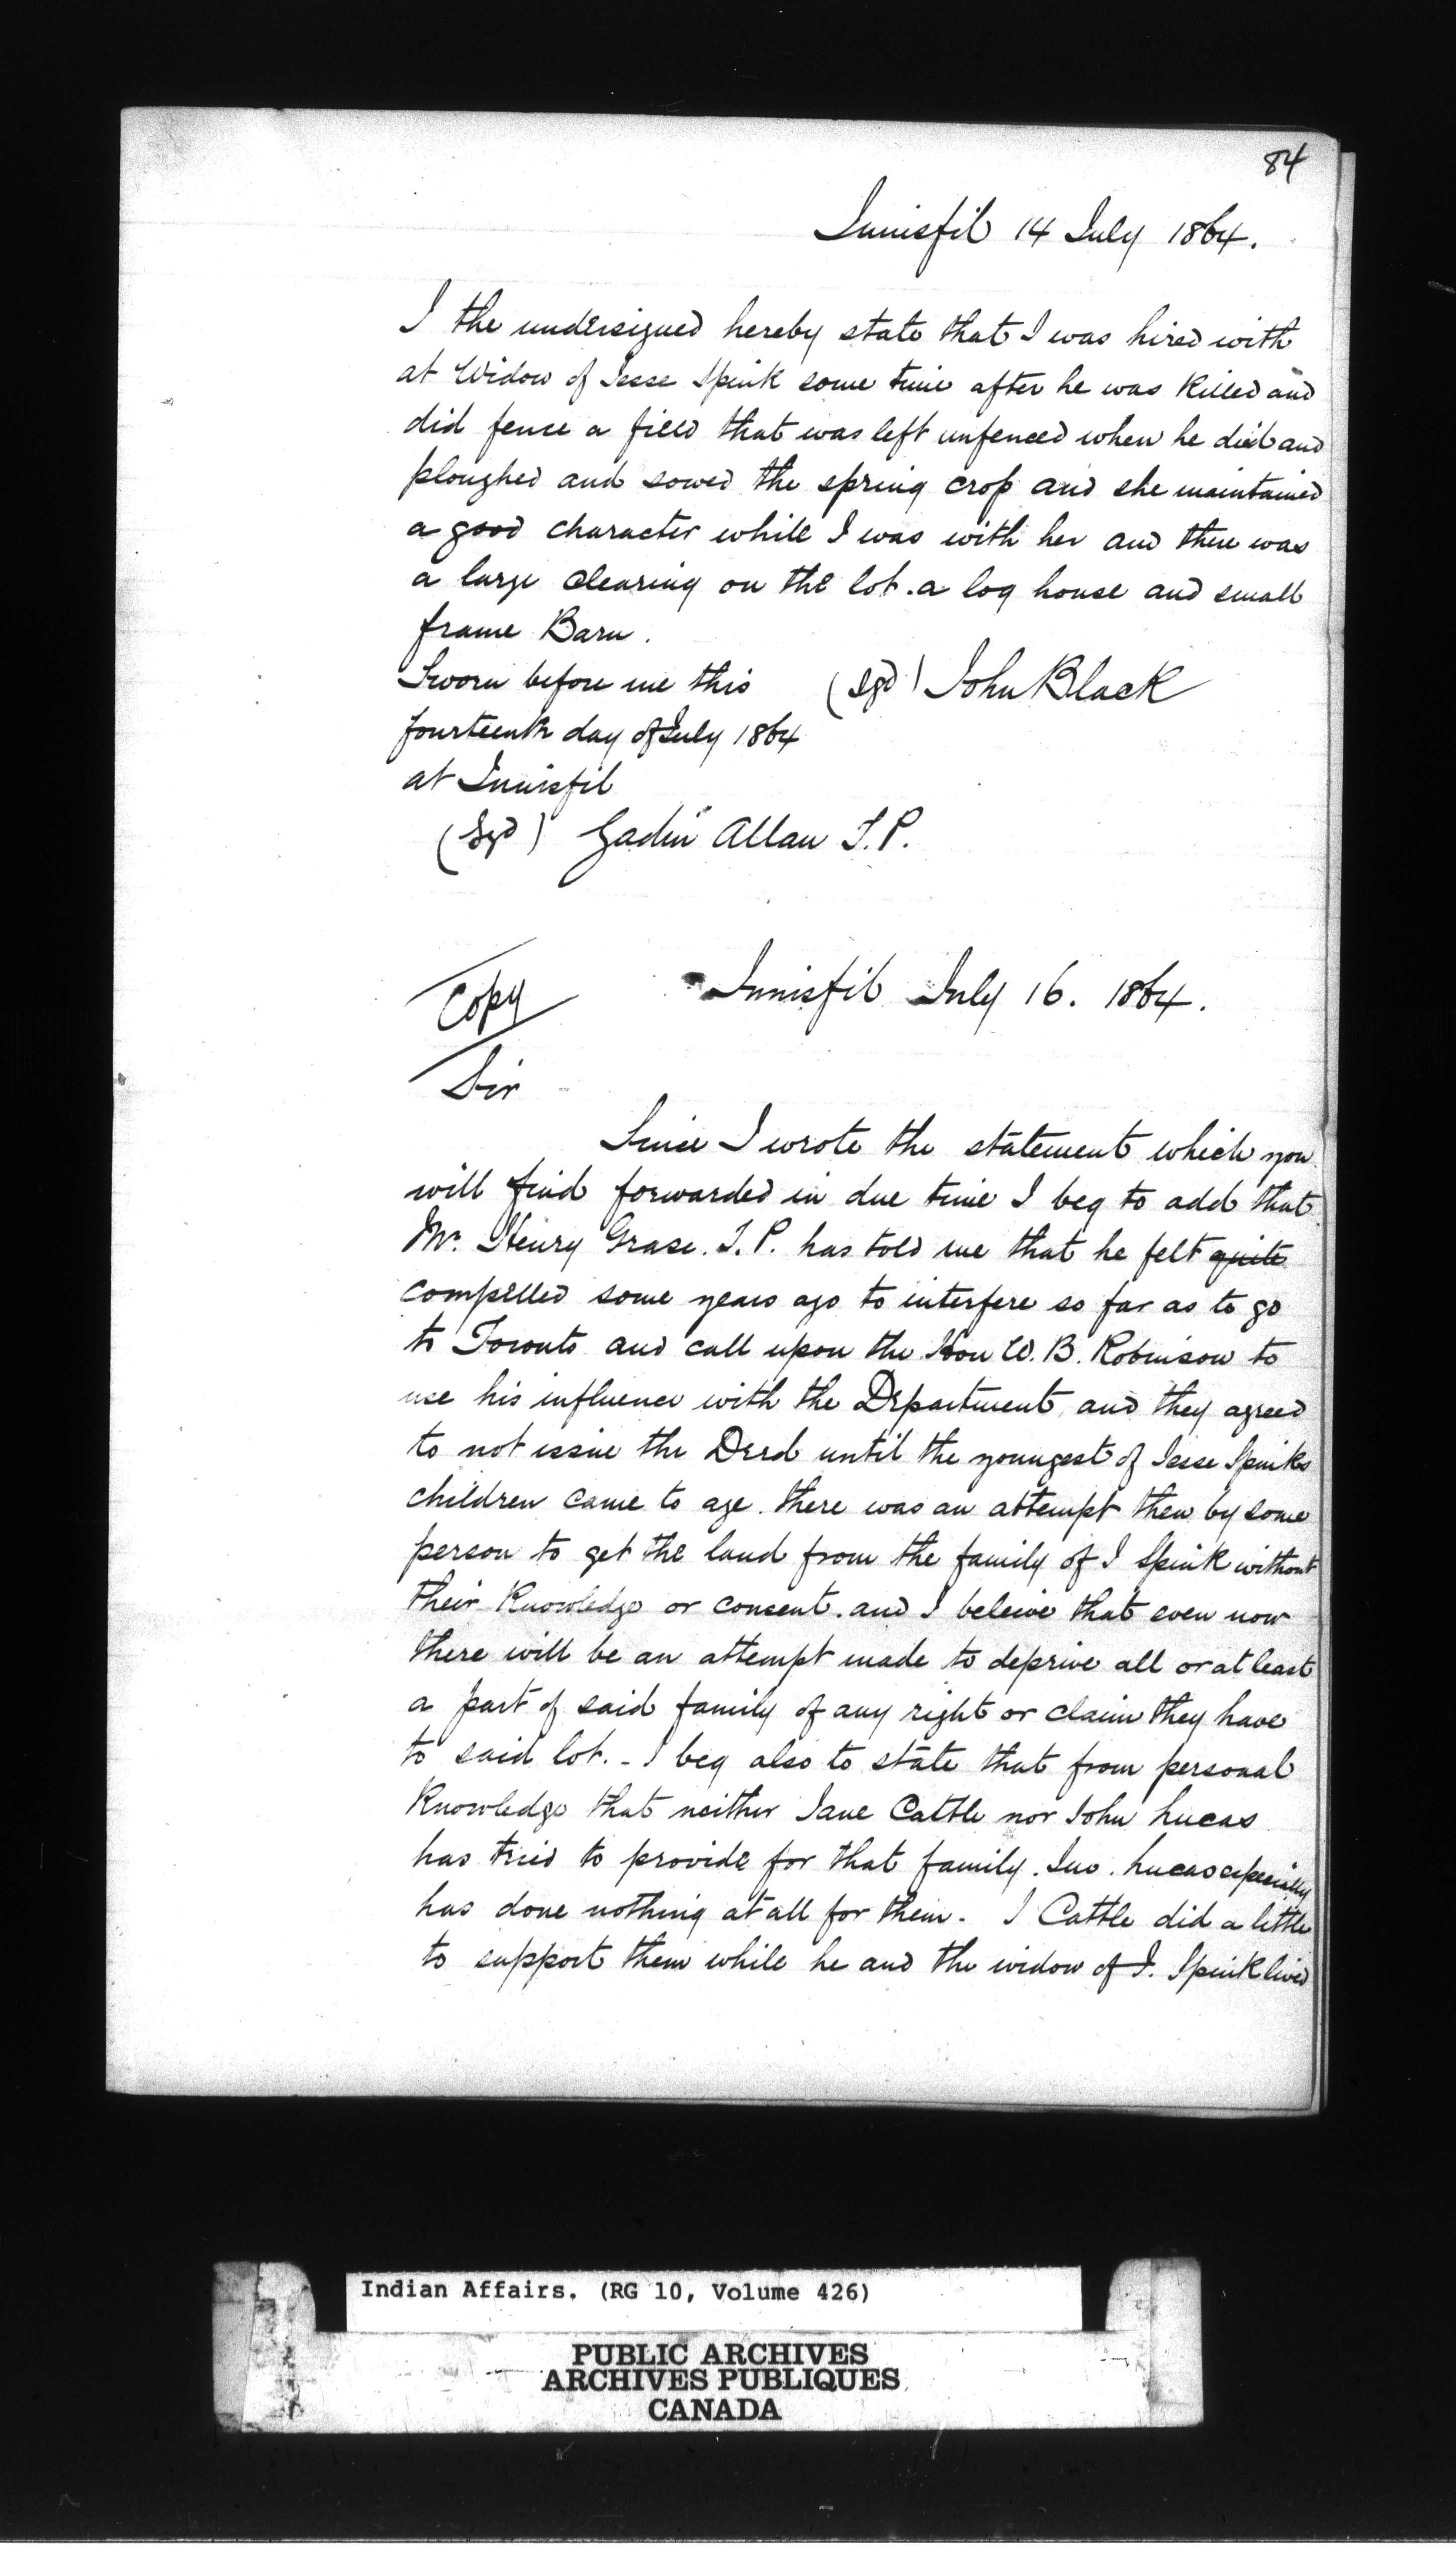 84
Innisfil 14 July 1864.
I the undersigned hereby state that I was hired with
at Widow of Jesse Spink some time after he was killed and
did fence a field that was left unfenced when he died and
ploughed and sowed the spring crop and she maintained
a good character while I was with her and there was
a large clearing on the lot. a log house and small
frame Barn.
Sworn before me this (sgd) John Black
fourteenth day of July 1864
at Innisfil
(Sgd) Allan J.P.
Copy
Innisfil July 16. 1864.
Sir
Since I wrote the statement which you
will find forwarded in due time I beg to add that
Mr. Henry Grase. J.P. has told me that he felt quite
compelled some years ago to interfere so far as to go
to Toronto and call upon the Hon W. B. Robinson to
use his influence with the Department and they agreed
to not issue the Deed until the youngest of Jesse Spinks
children came to age. there was an attempt then by some
person to get the land from the family of J Spink without
their Knowledge or consent. and I beleive that even now
there will be an attempt made to deprive all or at least
a part of said family of any right or claim they have
to said lot. - I beg also to state that from personal
Knowledge that neither Jane Cattle nor John Lucas
has tried to provide for that family. Jno. Lucas especially
has done nothing at all for them. J Cattle did a little
to support them while he and the widow of J. Spink lived
Indian Affairs. (RG 10, Volume 426)
PUBLIC ARCHIVES
ARCHIVES PUBLIQUES
CANADA